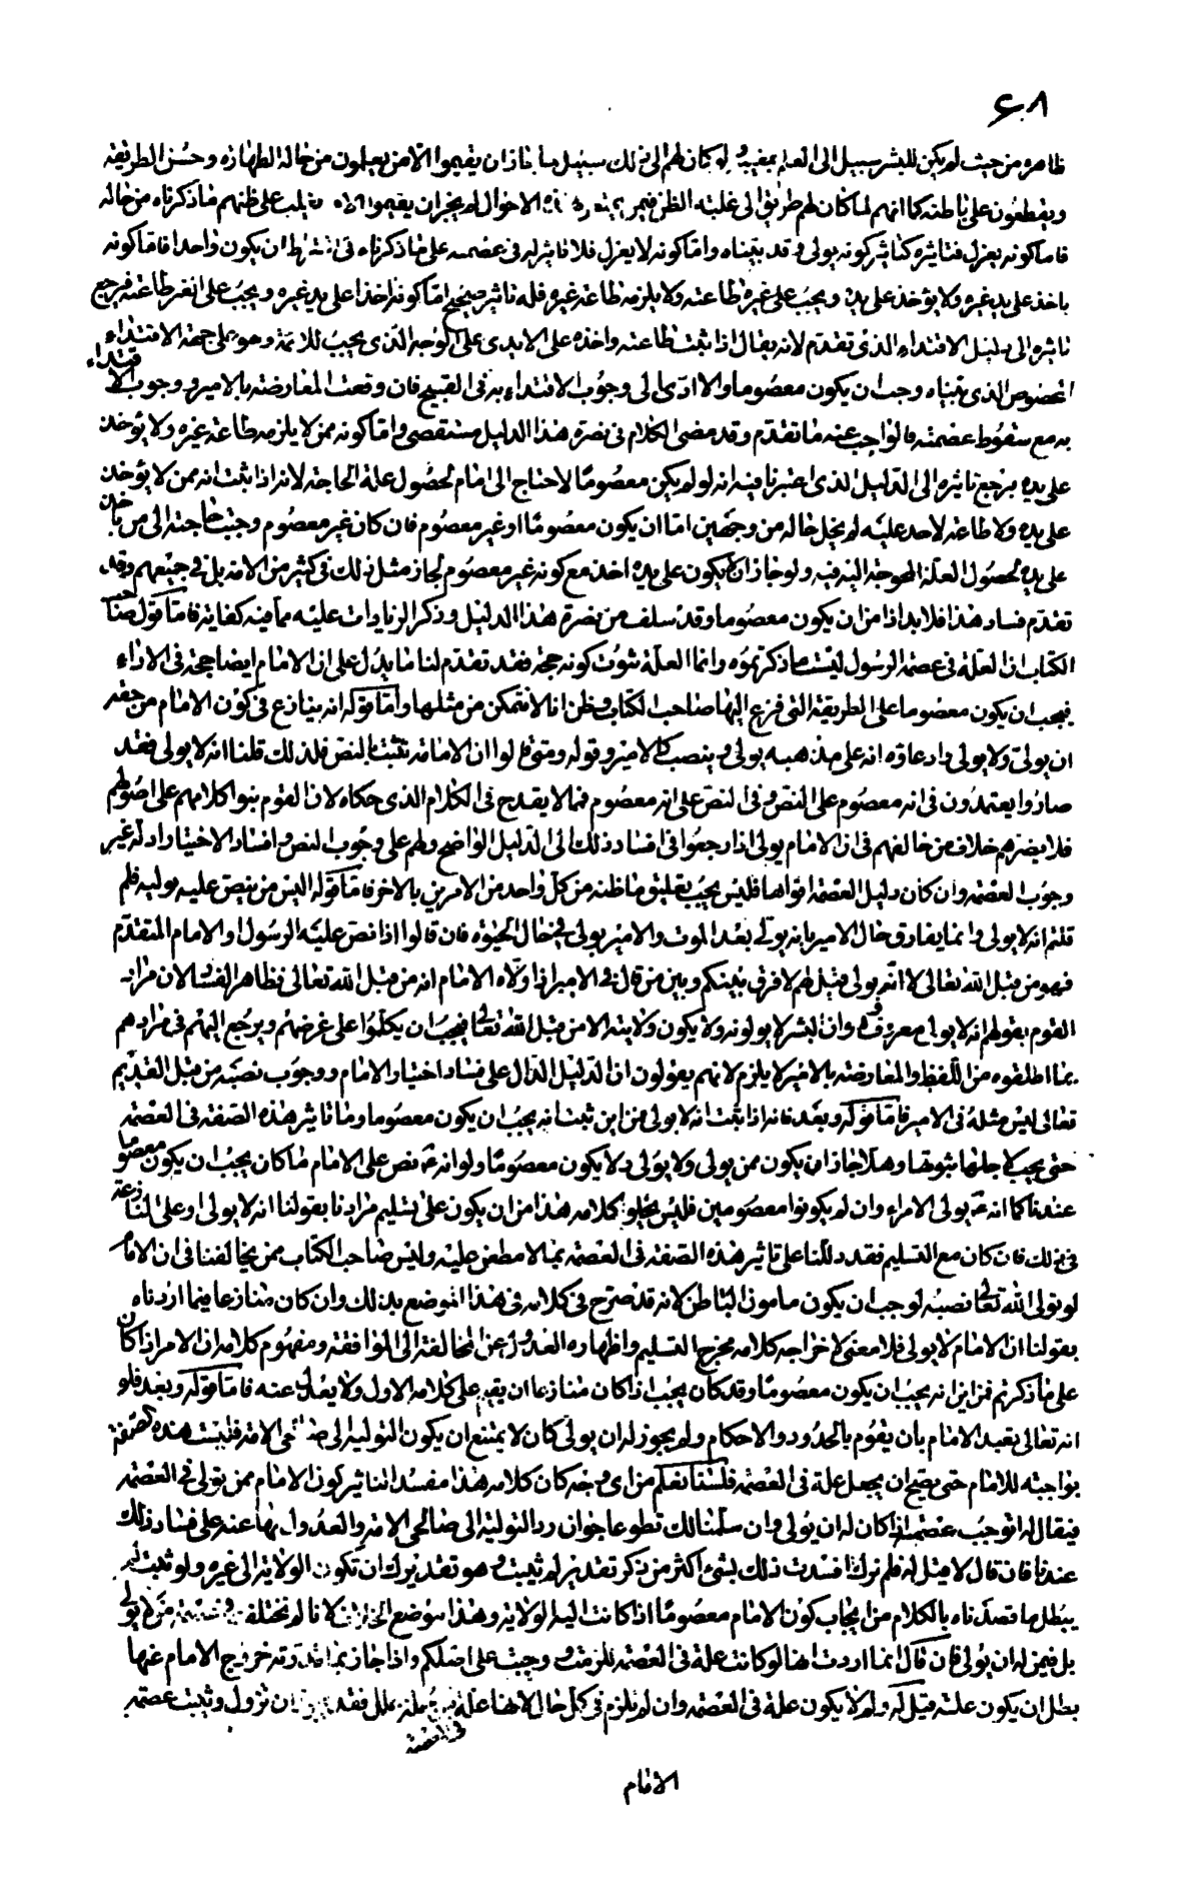 ۶۸
ظاهره من حيث لم يكن للبشر سبيل الى العلم بمغيبه ولو كان لهم الى ذلك سبيل ما جاز ان يقيموا الا من يعلمون من حاله الطهارة وحسن الطريقة
ويقطعون على باطنه كما انهم لما كان لهم طريق الى غلبة الظن فيمن الاحوال لم يجز ان يقيموا الا من يغلب على ظنهم ما ذكرناه من حاله
فاما كونه يعزل فتاثيره كتاثير كونه يولى وقد بيناه واما كونه لا يعزل فلا تاثير له في عصمته على ما ذكرناه في اشتراط ان يكون واحدا فاما كونه
ياخذ على يد غيره ولا يؤخذ على يده ويجب على غيره طاعته ولا يلزمه طاعة غيره فله تاثير صحيح اما كونه اخذا على يد غيره ويجب على الغير طاعته فيرجع
تاثيره الى دليل الاقتداء الذي تقدم لانه يقال اذا ثبت طاعته واخذه على الايدي على الوجه الذي يجب للائمة وهو على جهة الاقتداء
المخصوص الذي بيناه وجب ان يكون معصوما والا ادى الى وجوب الاقتداء به في القبيح فان وقعت المعارضة بالامير ووجوب الاقتداء
به مع سقوط عصمته فالواجب عنه ما تقدم وقد مضى الكلام في نصرة هذا الدليل مستقصى واما كونه ممن لا يلزمه طاعة غيره ولا يؤخذ
على يده يرجع تاثيره الى الدليل الذي اعتبرنا فيه انه لو لم يكن معصومًا لاحتاج الى امام لحصول علة الحاجة لانه اذا ثبت انه ممن لا يؤخذ
على يده ولا طاعة لاحد عليه لم يخل حاله من وجهين اما ان يكون معصومًا او غير معصوم فان كان غير معصوم وجبت حاجته الى من ياخذ
على يده لحصول العلة المحوجة اليه فيه ولو جاز الا يكون على يده اخذ مع كونه غير معصوم لجاز مثل ذلك في كثير من الامة بل في جميعهم وقد
تقدم فساد هذا فلا بد اذا من ان يكون معصوما وقد سلف من نصرة هذا الدليل وذكر الزيادات عليه ما فيه كفاية فاما قول صاحب
الكتاب ان العلة في عصمة الرسول ليست ما ذكرتموه وانما العلة ثبوت كونه حجة فقد تقدم لنا ما يدل على ان الامام ايضا حجة في الاداء
فيجب ان يكون معصوما على الطريقة التي فزع اليها صاحب الكتاب وظن انا لا نتمكن من مثلها واما قوله انه ينازع في كون الامام من جهة
ان يولى ولا يولى وادعاؤه انه على مذهبه يولى وينصب كالامير وقوله ومتى قالوا ان الامامة تثبت بالنص فلذلك قلنا انه لا يولى فقد
صاروا يعتمدون في انه معصوم على النص وفي النص على انه معصوم فمما لا يقدح في الكلام الذي حكاه لان القوم بنوا كلامهم على اصولهم
فلا يضرهم خلاف من خالفهم في ان الامام يولى اذا رجعوا في افساد ذلك الى الدليل الواضح ولهم على وجوب النص وافساد الاختيار ادلة غير
وجوب العصمة وان كان دليل العصمة اقواها فليس يجب تعليق ما ظنه من كل واحد من الامرين بالاخر فاما قوله اليس من ينص عليه يوليه فلم
قلتم انه لا يولى وانما يفارق حال الامير بانه يولى بعد الموت والامير يولى في حال الحيوة فان قالوا اذا نص عليه الرسول او الامام المتقدم
فهو من قبل الله تعالى لا انه يولى قيل لهم لا فرق بينكم وبين من قال في الامير اذا ولاه الامام انه من قبل الله تعالى فظاهر الفساد لان مراد
القوم بقولهم انه لا يولى معروف وان البشر لا يولونه ولا يكون ولايته الا من قبل الله تعالى فيجب ان يكلموا على غرضهم ويرجع اليهم في مرادهم
بما اطلقوه من اللفظ والمعارضة بالامير لا يلزم لانهم يقولون ان الدليل الدال على فساد اختيار الامام ووجوب نصبه من قبل القديم
تعالى ليس مثله في الامير فاما قوله وبعد فانه اذا ثبت انه لا يولى فمن اين ثبت انه يجب ان يكون معصوما وما تاثير هذه الصفة في العصمة
حتى يجب لاجلها ثبوتها وهلا جاز ان يكون ممن يولى ولا يولى ولا يكون معصومًا ولو انه ع نص على الامام لما كان يجب ان يكون معصوما
عندنا كما انه ع يولى الامراء وان لم يكونوا معصومين فليس يخلو كلامه هذا من ان يكون على تسليم مرادنا بقولنا انه لا يولى او على المنازعة
في ذلك فان كان مع التسليم فقد دللنا على تاثير هذه الصفة في العصمة بما لا مطعن عليه وليس صاحب الكتاب ممن يخالفنا في ان الامام
لو تولى الله تعالى نصبه لوجب ان يكون مامون الباطن لانه قد صرح في كلامه في هذا الموضع بذلك وان كان منازعا فيما اردناه
بقولنا ان الامام لا يولى فلا معنى لاخراجه كلامه مخرج التسليم واظهاره العدول عن المخالفة الى الموافقة ومفهوم كلامه ان الامر اذا كان
على ما ذكرتم فمن اين انه يجب ان يكون معصومًا وقد كان يجب اذا كان منازعا ان يقيم على كلامه الاول ولا يعدل عنه فاما قوله وبعد فلو
انه تعالى تعبد الامام بان يقوم بالحدود والاحكام ولم يجوز له ان يولى كان لا يمتنع ان يكون التولية الى صالحي الامة فليست هذه الصفة
بواجبة للامام حتى يصح ان يجعل علة في العصمة فلسنا نعلم من اي وجه كان كلامه هذا مفسدا لتاثير كون الامام ممن يولى في العصمة
فيقال له اتوجب عصمته اذا كان له ان يولى وان سلمنا لك تطوعا جواز رد التولية الى صالحي الامة والعدول بها عنه على فساد ذلك
عندنا فان قال لا قيل له فلم نرك افسدت ذلك بشئ اكثر من ذكر تقدير لم يثبت وهو تقديرك ان تكون الولاية الى غيره ولو ثبت لم
يبطل ما قصدناه بالكلام من ايجاب كون الامام معصومًا اذا كانت اليه الولاية وهذا موضع الخلاف لانا لم نختلف في عصمة من لا يولى
بل فيمن له ان يولى فان قال انما اردت انها لو كانت علة في العصمة للزمت ووجبت على اصلكم واذا جاز بما قدرته خروج الامام عنها
بطل ان يكون علة قيل له ولم لا يكون علة في العصمة وان لم يلزم في كل حال لانها علة فقد ان تزول وتثبت عصمة
في العصمة
الامام